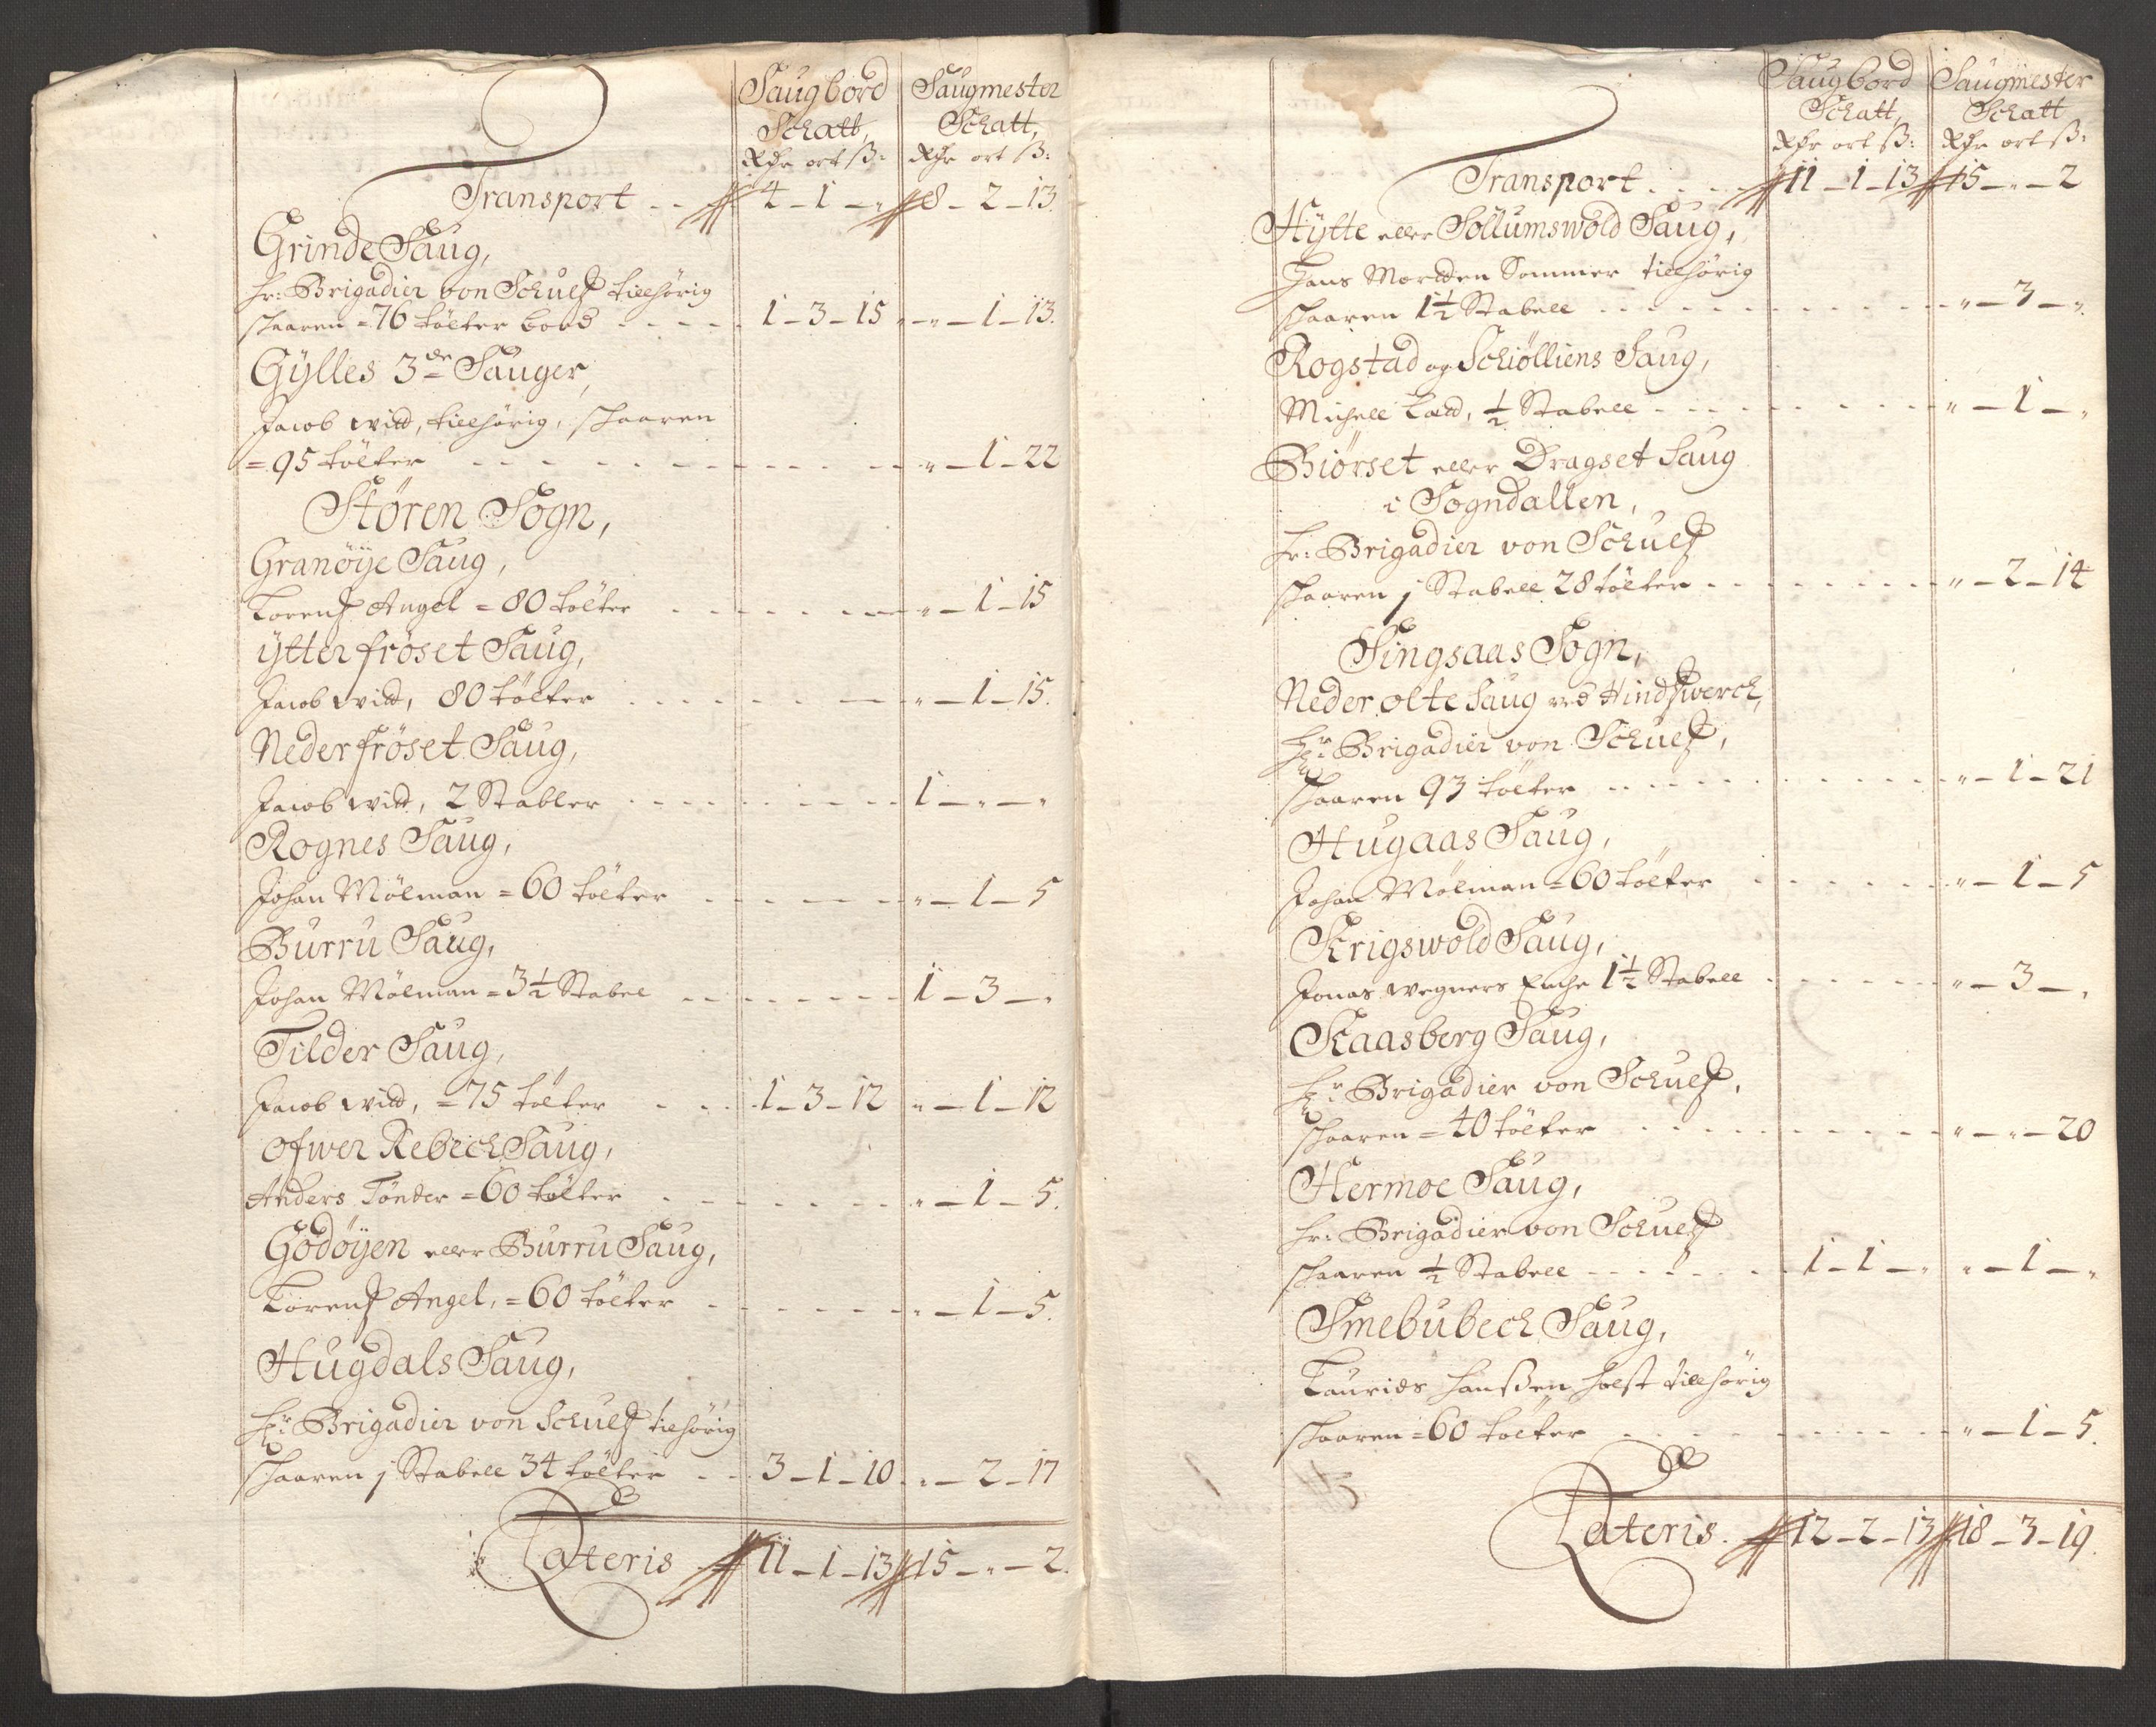 Saugbord Saugmester
Schatt, Schatt,
Rdr ort ß: Rdr ort ß:
Transport . . 4 - 1 - „ 8 - 2 - 13.
Grinde Saug,
Hr: Brigadier von Schultz tillhörig
schaaren = 76 tölter bord . . . . 1 - 3 - 15 „ - 1 - 13.
Gylles 3de Sauger,
Jacob Witt, tillhörig, schaaren
= 95 tölter . . . . „ - 1 - 22
Stören Sogn,
Granöye Saug,
Lorentz Angel = 80 tölter . . . . „ - 1 - 15
Ytter fröset Saug,
Jacob Witt, 80 tölter . . . . „ - 1 - 15.
Neder fröset Saug,
Jacob Witt, 2 Stabler . . . . 1 - „ - „
Rognes Saug,
Johan Mölman = 60 tölter . . . . „ - 1 - 5
Burru Saug,
Johan Mölman = 3½ Stabel . . . . 1 - 3 - „
Tilder Saug,
Jacob Witt, = 75 tölter . . . . 1 - 3 - 12 „ - 1 - 12
Ofwer Rebech Saug,
Anders Tönder = 60 tölter . . . . „ - 1 - 5.
Godöyen eller Burru Saug,
Lorentz Angel, = 60 tölter . . . . „ - 1 - 5.
Hugdals Saug,
Hr Brigadier von Schultz tilhörig
schaaren j Stabell 34 tölter . . 3 - 1 - 10 „ - 2 - 17
Lateris 11 - 1 - 13 15 - „ - 2.
Saugbord Saugmester
Schatt, Schatt
Rdr ort ß: Rdr ort ß:
Transport . . . . 11 - 1 - 13 15 - „ - 2
Hytte eller Sollumswold Saug,
Hans Mortten Sommer tillhörig
schaaren 1½ Stabell . . . . „ - 3 - „
Rogstad og Schiölliens Saug,
Michell Ladd, ½ Stabell . . . . „ - 1 - „
Biörset eller Dragset Saug
i Sogndallen,
Hr: Brigadier von Schultz
schaaren j Stabell 28 tölter . . . . „ - 2 - 14
Singsaas Sogn,
Neder olte Saug ved Hindswerch,
Hr Brigadier von Schultz,
schaaren 93 tölter . . . . „ - 1 - 21
Hugaas Saug,
Johan Mölman = 60 tölter . . . . „ - 1 - 5
Krigswold Saug,
Jonas Wegners Enche 1½ Stabell . . . . „ - 3 - „
Kaasberg Saug,
Hr Brigadier von Schultz,
schaaren = 40 tölter . . . . „ - „ - 20
Hermoe Saug,
Hr: Brigadier von Schultz
schaaren ½ Stabell . . . . 1 - 1 - „ „ - 1 - „
Smebubech Saug,
Laurids Hanßen Holst tillhörig
schaaren = 60 tölter . . . . „ - 1 - 5.
Lateris. 12 - 2 - 13 18 - 3 - 19.